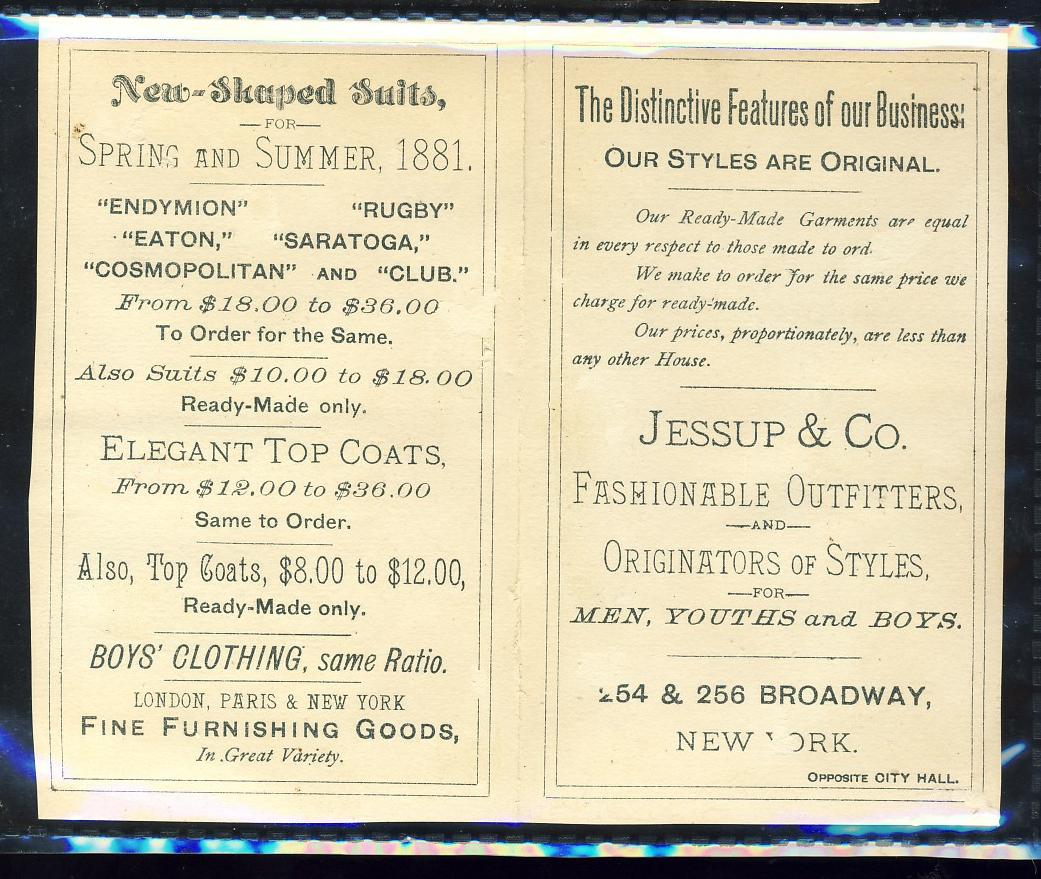 New-Shaped Suits,
—FOR—
SPRING AND SUMMER, 1881.
"ENDYMION" "RUGBY"
"EATON," "SARATOGA,"
"COSMOPOLITAN" AND "CLUB."
From $18.00 to $36.00
To Order for the Same.
Also Suits $10.00 to $18.00
Ready-Made only.
ELEGANT TOP COATS,
From $12.00 to $36.00
Same to Order.
Also, Top Coats, $8.00 to $12.00,
Ready-Made only.
BOYS' CLOTHING, same Ratio.
LONDON, PARIS & NEW YORK
FINE FURNISHING GOODS,
In Great Variety.
The Distinctive Features of our Business:
OUR STYLES ARE ORIGINAL.
Our Ready-Made Garments are equal
in every respect to those made to ord.
We make to order for the same price we
charge for ready-made.
Our prices, proportionately, are less than
any other House.
JESSUP & CO.
FASHIONABLE OUTFITTERS,
—AND—
ORIGINATORS OF STYLES,
—FOR—
MEN, YOUTHS and BOYS.
254 & 256 BROADWAY,
NEW YORK.
OPPOSITE CITY HALL.